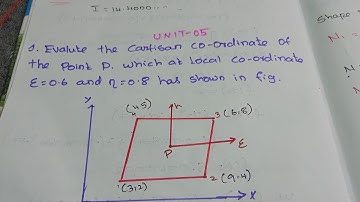 I = 14.4000
Shape
N₁
UNIT-05
1. Evalute the Cartisan co-ordinate of
the Point P. which at local co-ordinate
ε=0.6 and η=0.8 has shown in fig.
y
(4,5)
4
η
3 (6.8)
ε
P
1 (3,2)
2 (9.4)
x